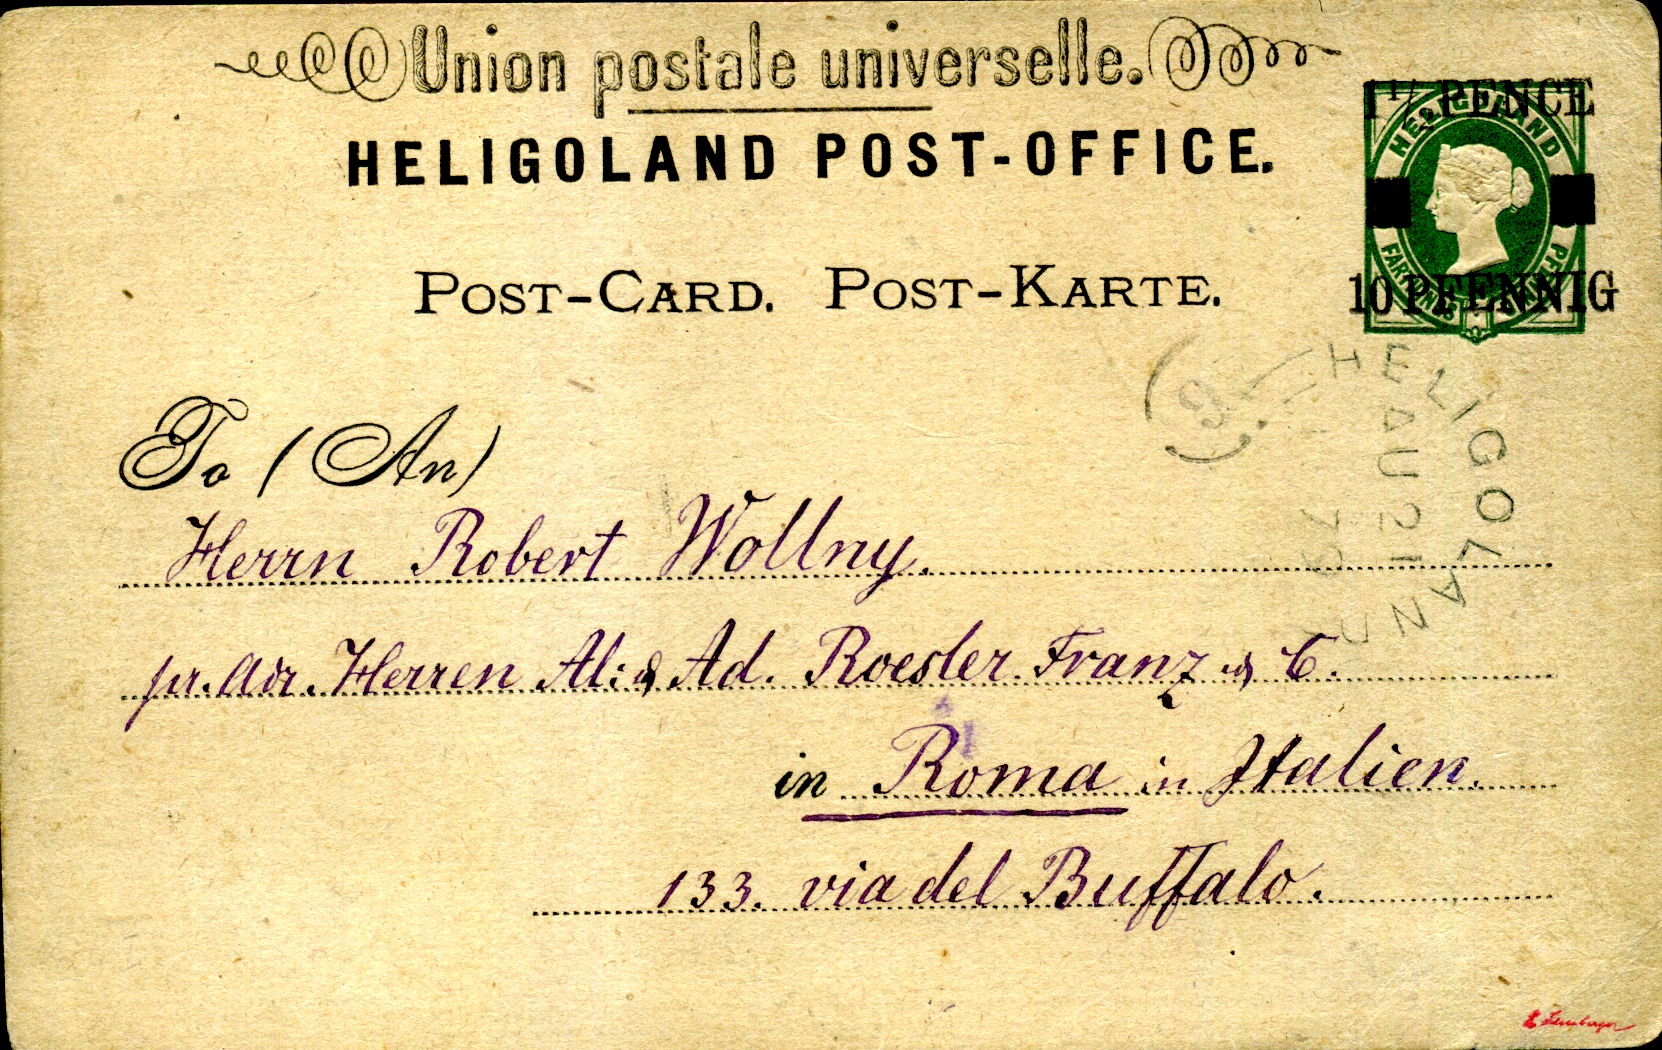 Union postale universelle.
HELIGOLAND POST-OFFICE.
1½ PENCE
HELIGOLAND
FARTHINGS
10 PFENNIG
POST-CARD. POST-KARTE.
HELIGOLAND
AU 21
To (An)
Herrn Robert Wollny.
pr. Adr. Herren Al: & Ad. Roesler. Franz & C.
in Roma in Italien.
133. via del Buffalo.